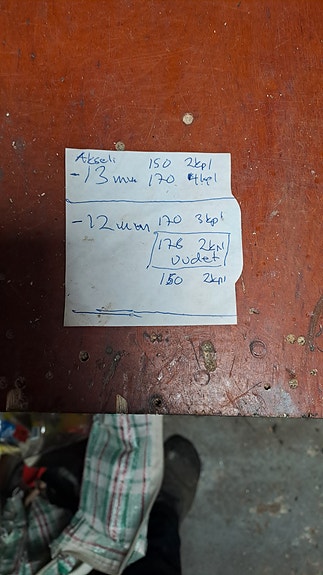 Akseli 150 2kpl
-13mm 170 4kpl
-12mm 170 3kpl
176 2kpl
uudet
150 2kpl